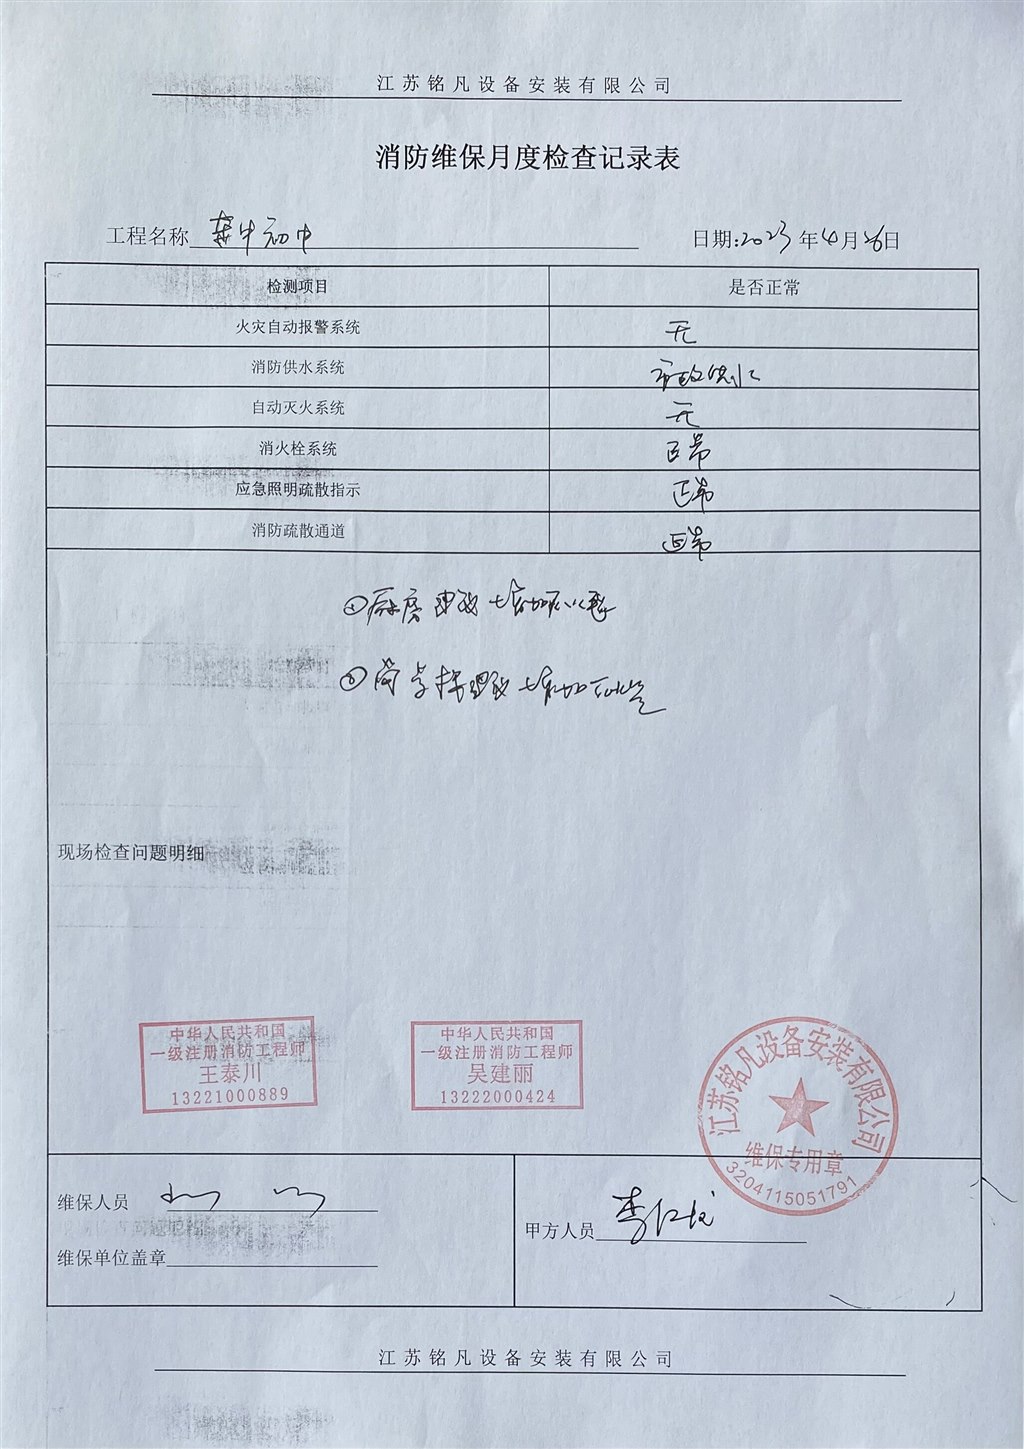 江苏铭凡设备安装有限公司
消防维保月度检查记录表
工程名称 初中 日期:2023年4月26日
检测项目 是否正常
火灾自动报警系统 无
消防供水系统 市政供水
自动灭火系统 无
消火栓系统 正常
应急照明疏散指示 正常
消防疏散通道 正常
①厨房
②
现场检查问题明细
中华人民共和国
一级注册消防工程师
王泰川
13221000889
中华人民共和国
一级注册消防工程师
吴建丽
13222000424
江苏铭凡设备安装有限公司
维保专用章
3204115051791
维保人员
甲方人员 李
维保单位盖章
江苏铭凡设备安装有限公司